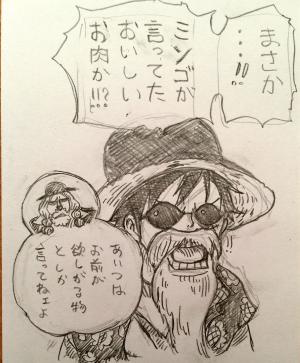 まさか
・・・・!!
ミンゴが
言ってた
おいしい
お肉か!!!?
あいつは
お前が
欲しがる物
としか
言ってねェよ